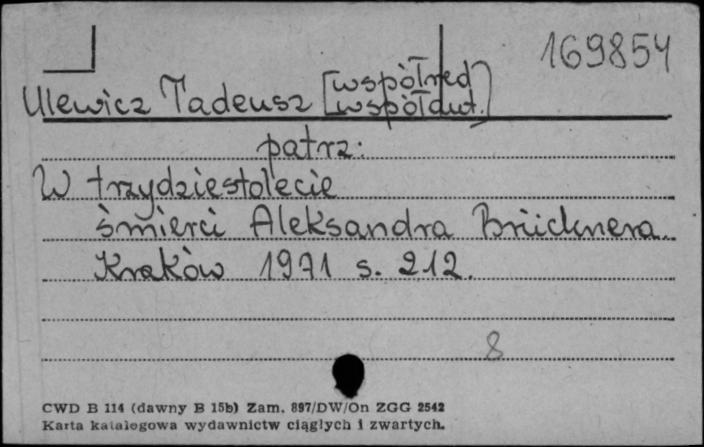 169854
Ulewicz Tadeusz [współred
współaut.]
patrz:
W trzydziestolecie
śmierci Aleksandra Brücknera.
Kraków 1971 s. 212.
8
CWD B 114 (dawny B 15b) Zam. 897/DW/On ZGG 2542
Karta katalogowa wydawnictw ciągłych i zwartych.